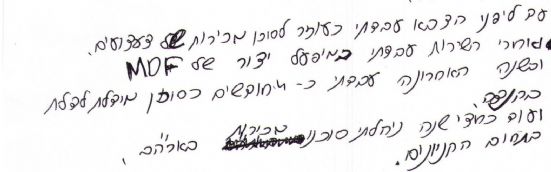 עם לפני הצבא עבדתי כעוזר לסוכן מכירות של צעצועים.
ואחרי השירות עבדתי במיפעל יצור של MDF
ובשנה האחרונה עבדתי כ- חודשים כסוכן מידלת לדלת
בהנדסה
ועוד כחצי שנה ניהלתי סוכנו מכירות בארה"ב,
בתחום הקניונים.